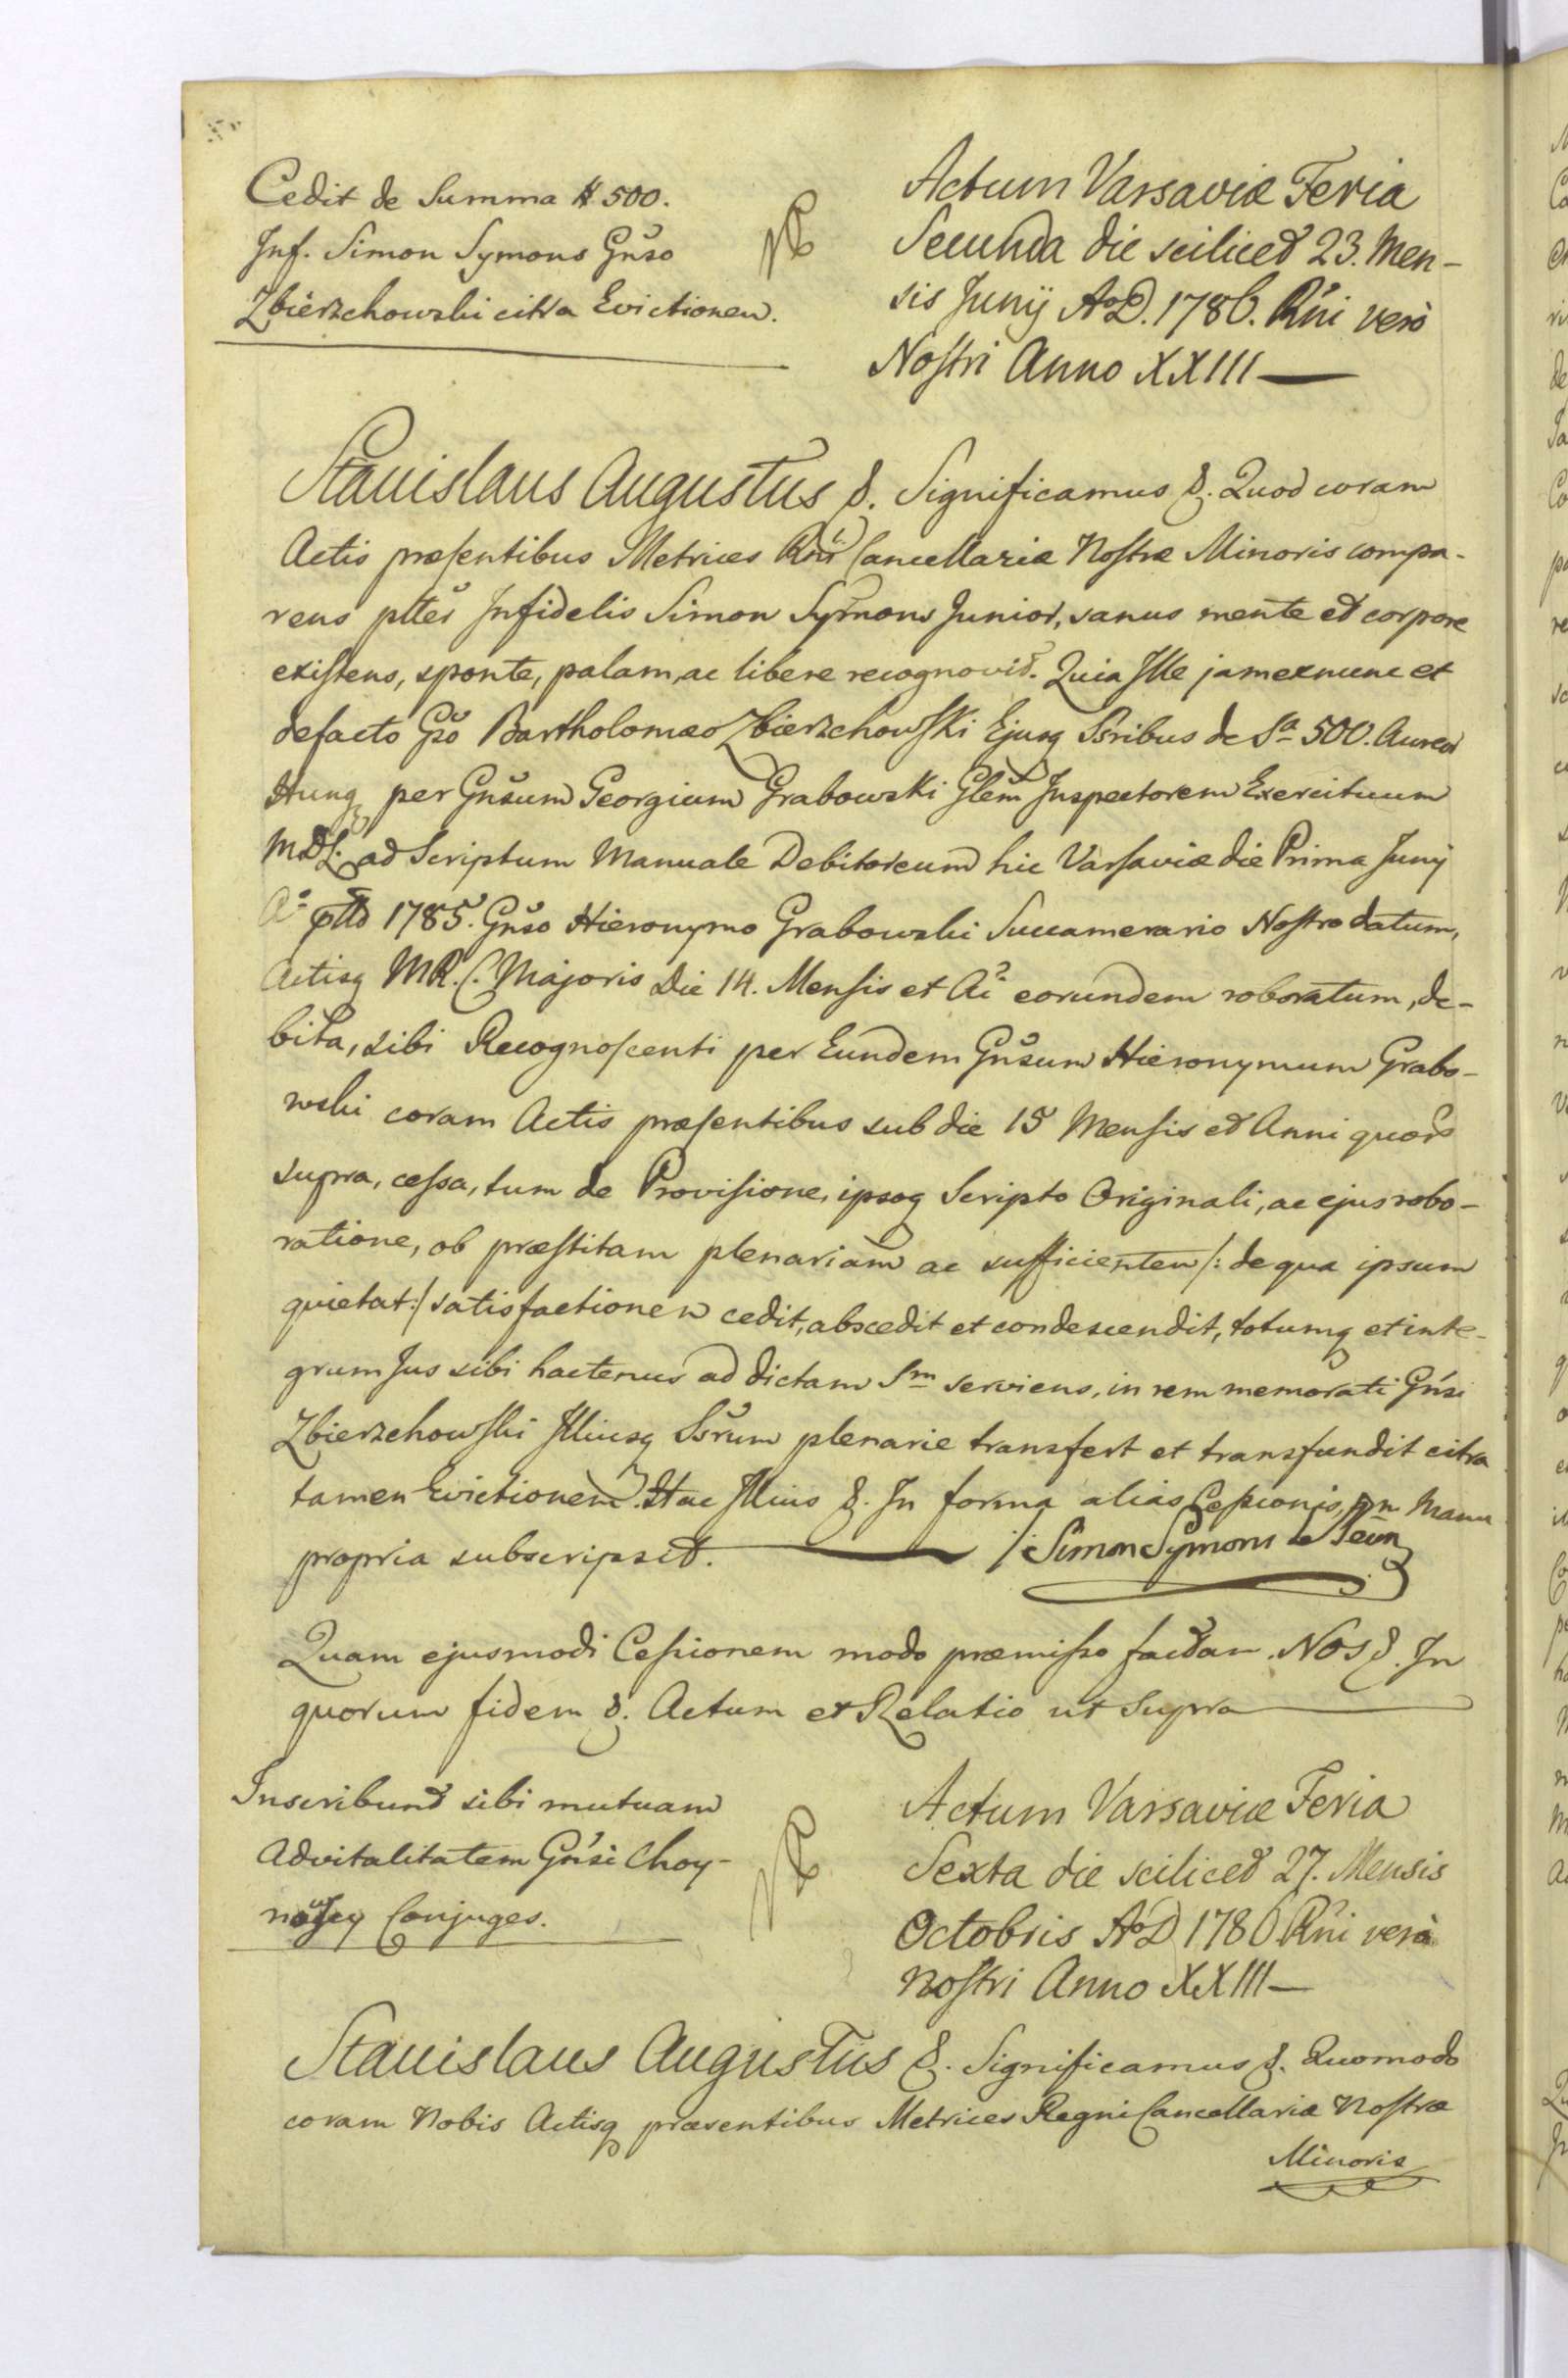 Cedit de Summa # 500.
Inf. Simon Symons Gnso
Zbierzchowski citra Evictionem.
Actum Varsaviæ Feria
Secunda die scilicet 23. Men-
sis Junÿ AoD. 1786. Rni verò
Nostri Anno XXIII —
Stanislaus Augustus &. Significamus &. Quod coram
Actis præsentibus Metrices Rni Cancellariæ Nostræ Minoris compa-
rens pltes Infidelis Simon Symons Junior, sanus mente et corpore
existens, sponte, palam, ac libere recognovit. Quia Ille jam ex nunc et
defacto Gso Bartholomæo Zbierzchowski Ejusq Ssribus de Sa 500. Aureor
Hung per Gnsum Georgium Grabowski Glem Inspectorem Exercituum
MDL. ad Scriptum Manuale Debitoreum hic Varsaviæ die Prima Junÿ
Ao 1785. Gnso Hieronymo Grabowski Succamerario Nostro datum,
Actisq MR.C. Majoris Die 14. Mensis et Ai eorundem roboratum, de-
bita, sibi Recognoscenti per Eundem Gnsum Hieronymum Grabo-
wski coram Actis præsentibus sub die 15 Mensis et Anni quors
supra, cessa, tum de Provisione, ipsoq Scripto Originali, ac ejus robo-
ratione, ob præstitam plenariam ac sufficientem /: de qua ipsum
quietat :/ satisfactionem cedit, abscedit et condescendit, totumq et inte-
grum Jus sibi hactenus ad dictam Sm serviens, in rem memorati Gnsi
Zbierzchowski Illiusq Ssrum plenarie transfert et transfundit citra
tamen Evictionem. Hac Illius &. In forma alias Cessionis, Manu
propria subscripsit. — /: Simon Symons
Quam ejusmodi Cessionem modo præmisso factam. Nos &. In
quorum fidem &. Actum et Relatio ut Supra
Inscribunt sibi mutuam
Advitalitatem Gnsi Choy-
Conjuges.
Actum Varsaviæ Feria
Sexta die scilicet 27. Mensis
Octobris AoD 1786 Rni verò
nostri Anno XXIII —
Stanislaus Augustus &. Significamus &. Quomodo
coram Nobis Actisq præsentibus Metrices Regni Cancellariæ Nostræ
Minoris